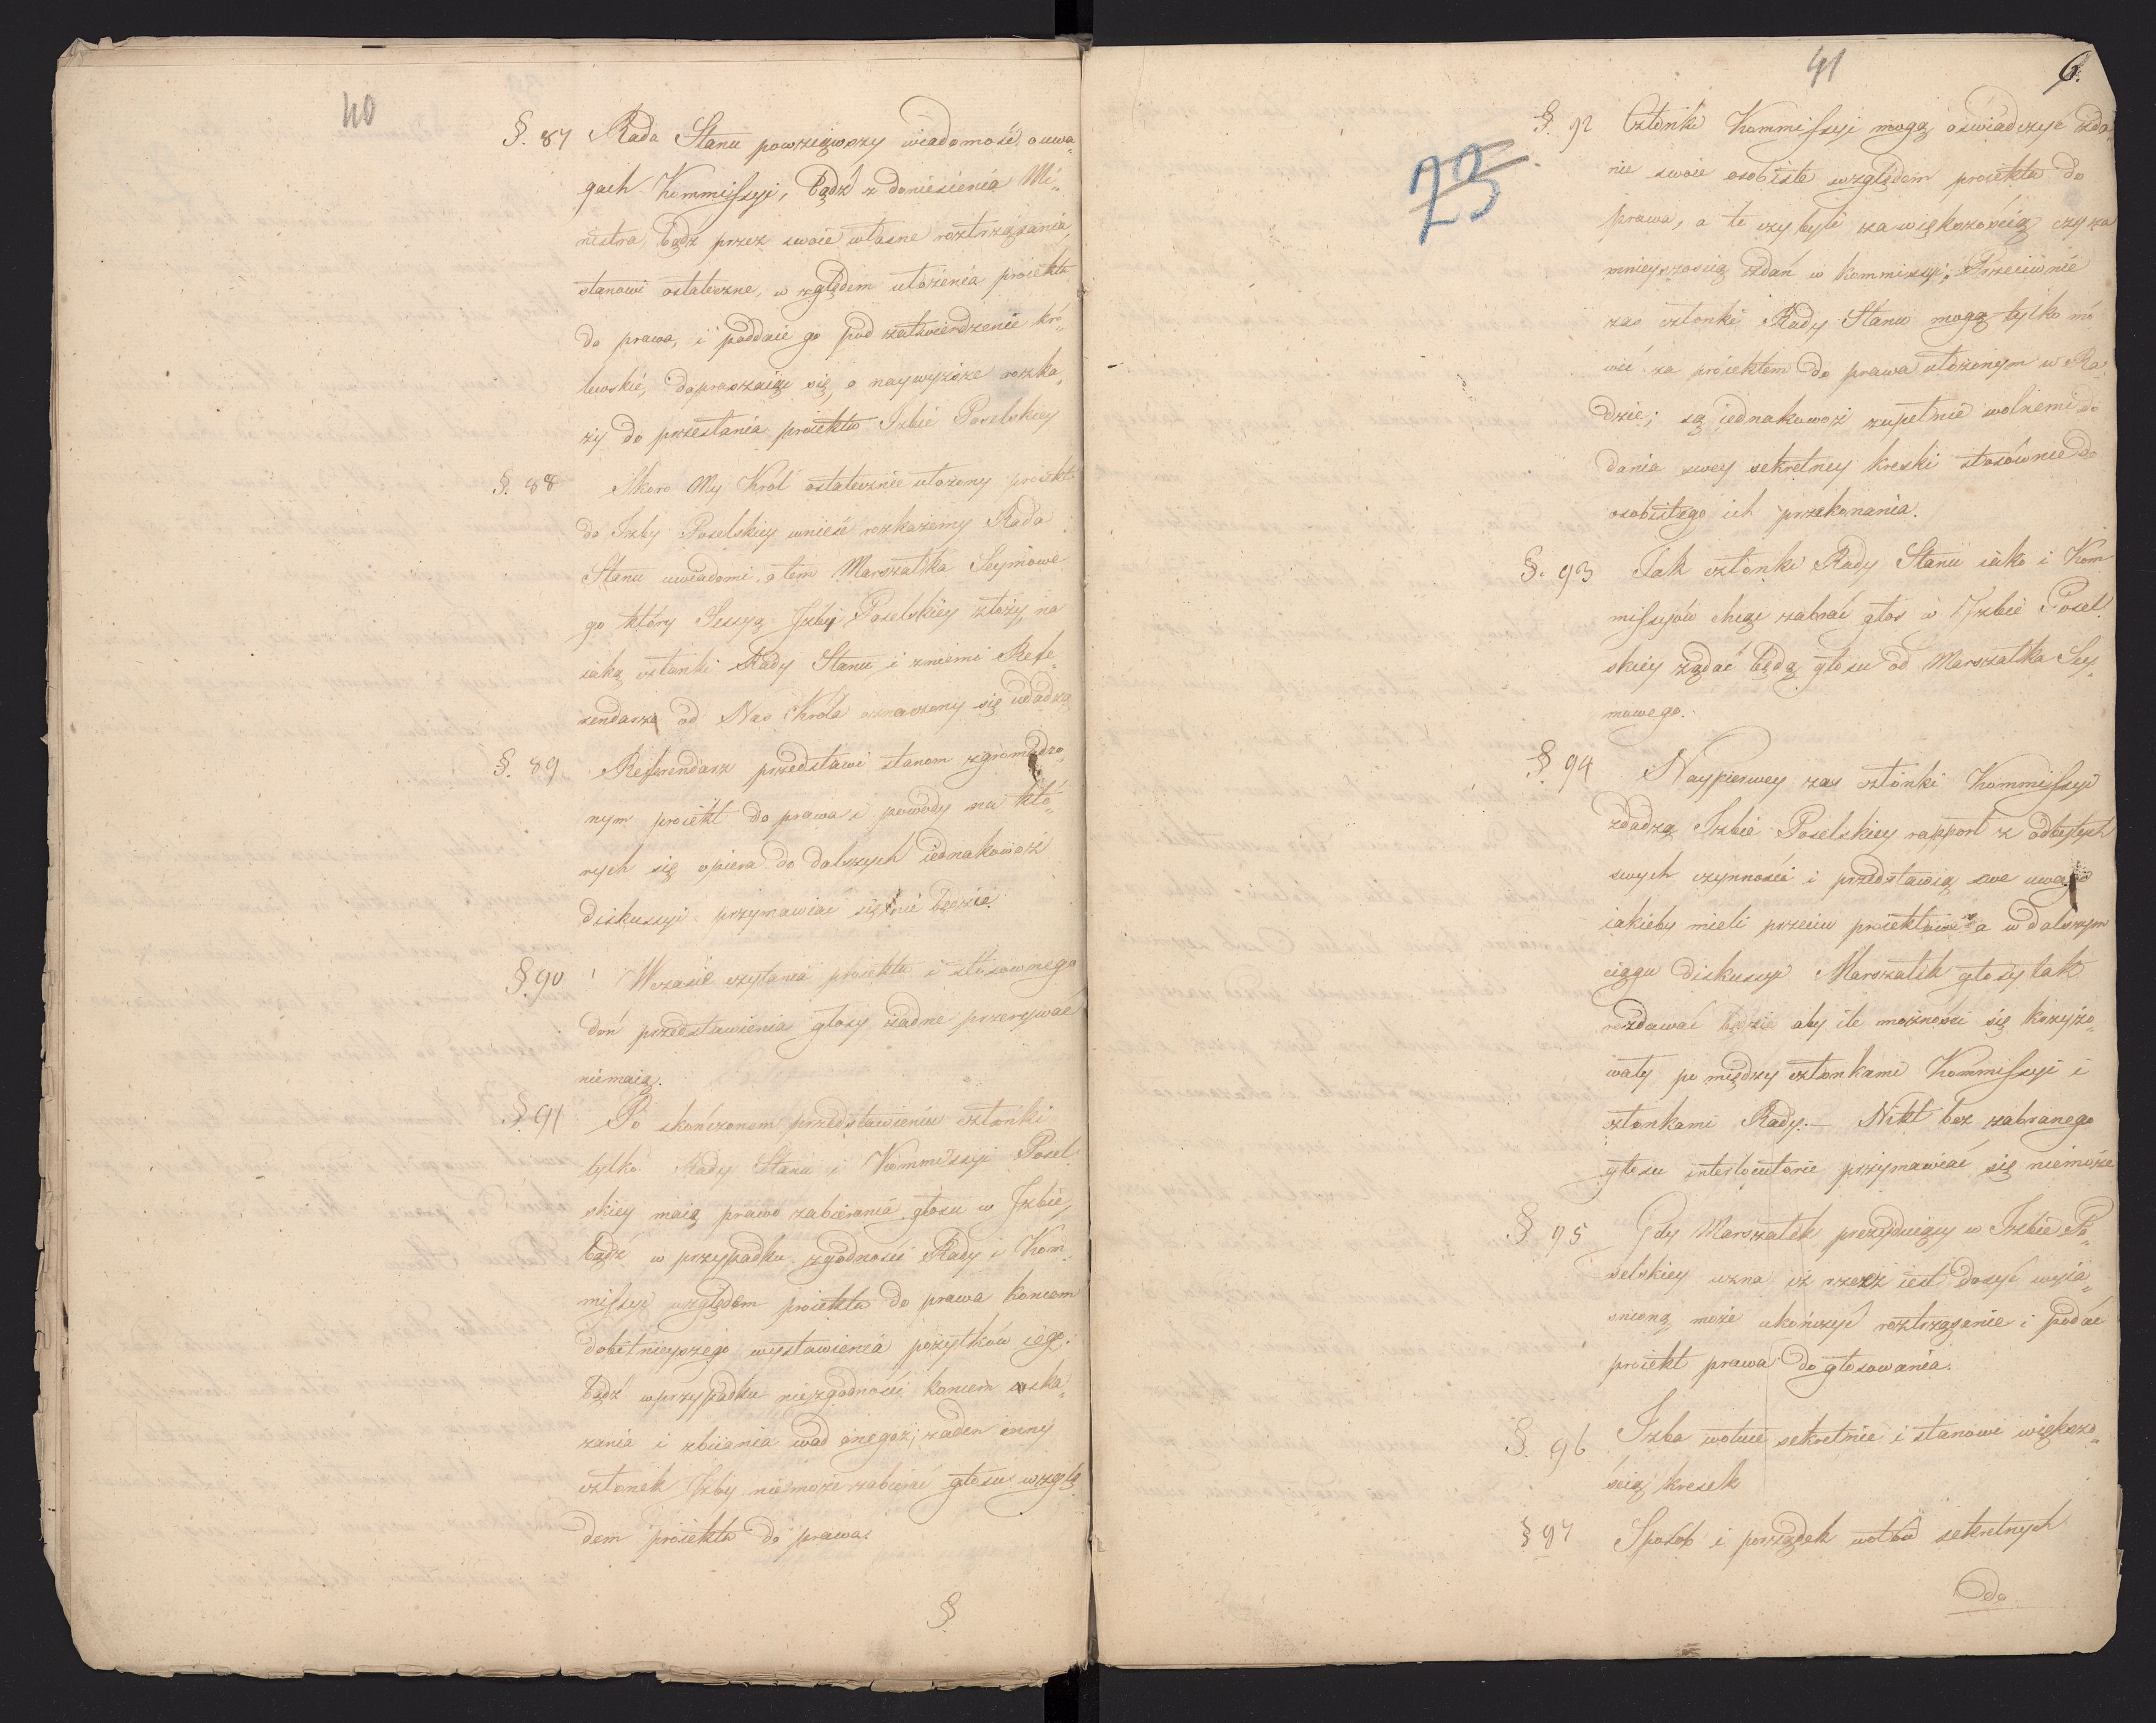 40
§. 87 Rada Stanu powziąwszy wiadomość o uwa„
gach Kommissyi, bądź z doniesienia Mi„
nistra, bądź przez swoie własne roztrząsania,
stanowi ostateczne, względem ułożenia proiektu
do prawa, i poddaie go pod zatwierdzenie kró„
lewskie, dopraszaiąc się, o naywyższe rozka„
zy do przesłania proiektu Izbie Poselskiey
§. 88 Skoro My Król ostatecznie ułożony proiekt
do Izby Poselskiey wnieść rozkażemy Rada
Stanu uwiadomi o tem Marszałka Seymowe
go który Sessyą Izby Poselskiey złoży, na
iaką członki Rady Stanu i zniemi Refe„
rendarz od Nas Króla oznaczony się udadzą
§. 89 Referendarz przedstawi stanom zgromadzo„
nym proiekt do prawa i powody na któ„
rych się opiera do dalszych iednakowoż
diskussyi przymawiać się nie będzie.
§. 90 Wczasie czytania proiektu i stosownego
doń przedstawienia głosy żadne przerywać
niemaią.
§. 91 Po skończonem przedstawieniu członki
tylko Rady Stanu i Kommissyi Posel
skiey maią prawo zabierania głosu w Izbie,
bądź w przypadku zgodności Rady i Kom„
missyi względem proiektu do prawa koncem
dobitnieyszego wystawienia pożytków iego.
bądź wprzypadku niezgodności koncem wska„
zania i zbiiania wad onegoż; żaden inny
członek Izby niemoże zabierać głosu wzglę
dem proiektu do prawa.
§
41
6.
23
§. 92 Członki Kommissyi mogą oświadczyć zda„
nie swoie osobiste względem proiektu do
prawa, a to czy byli za większością czy za
mnieyszością zdań w kommissyi; Przeciwnie
zas członki Rady Stanu mogą tylko mó
wić za proiektem do prawa ułożonym w Ra„
dzie; są iednakowoż zupełnie wolnemi do
dania swey sekretney kreski stosównie do
osobistego ich przekonania.
§. 93 Tak członki Rady Stanu iako i Kom
missyów chcąc zabrać głos w Izbie Posel
skiey żądać będą głosu od Marszałka Sey„
mowego.
§ 94 Naypierwey zas członki Kommissyi
zdadzą Izbie Poselskiey rapport z odbytych
swych czynności i przedstawią swe uwagi
iakieby mieli przeciw proiektowi a w dalszym
ciągu diskussyi Marszałek głosy tak
rozdawać będzie aby ile możności się krzyżo„
wały po między członkami Kommissyi i
członkami Rady. — Nikt bez zabranego
głosu interlocutorie przymawiać się niemoże
§ 95 Gdy Marszałek prezyduiący w Izbie Po„
selskiey uzna iż rzecz iest dosyć wyia„
snioną może ukończyć roztrząsanie i podać
proiekt prawa do głosowania.
§. 96 Izba wotuie sekretnie i stanowi większo„
ścią kresek
§ 97 Sposób i porządek wotów sekretnych
do